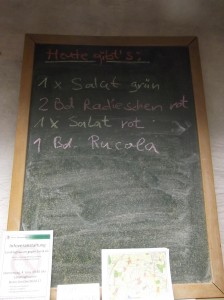 Heute gibt's:
1 x Salat grün
2 Bd. Radieschen rot
1 x Salat rot
1 Bd. Rucola